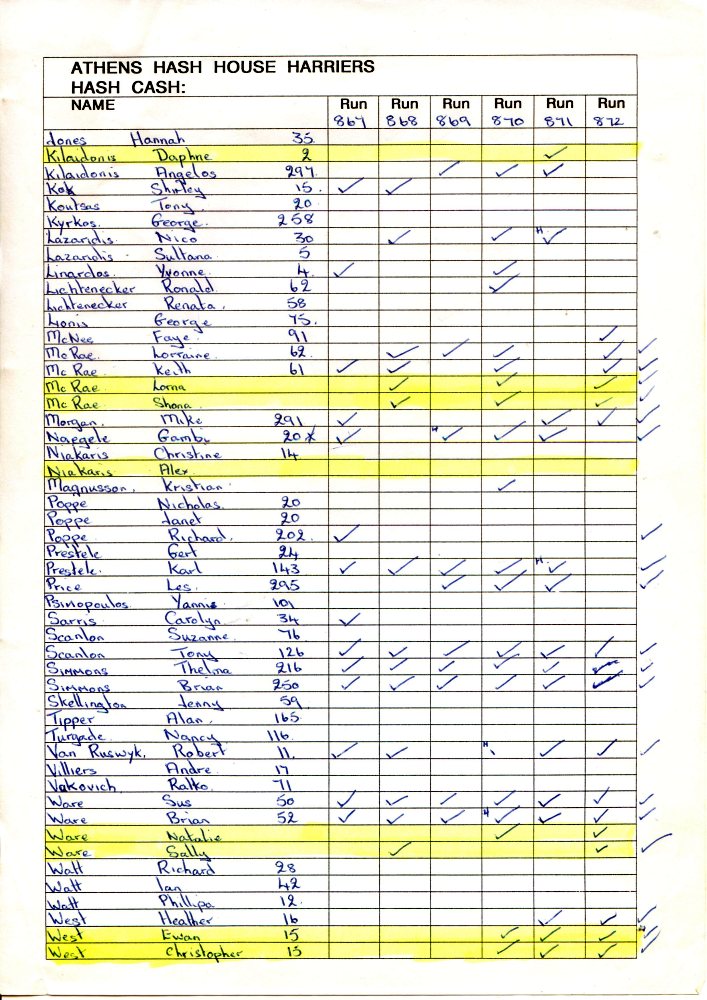 ATHENS HASH HOUSE HARRIERS
HASH CASH:
NAME Run Run Run Run Run Run
867 868 869 870 871 872
Jones Hannah 35
Kilaidonis Daphne 2 ✓
Kilaidonis Angelos 297. ✓ ✓ ✓
Kok Shirley 15. ✓ ✓
Koutsas Tony. 20.
Kyrkos. George. 258
Lazaridis. Nico 30 ✓ ✓ H ✓
Lazaridis. Sultana. 5
Linardos. Yvonne. 4. ✓ ✓
Lichtenecker Ronald. 62 ✓
Lichtenecker Renata. 58
Lionis George 75.
McNee Faye. 91 ✓
Mc Rae. Lorraine. 62. ✓ ✓ ✓ ✓ ✓
Mc Rae. Keith 61 ✓ ✓ ✓ ✓ ✓
Mc Rae Lorna ✓ ✓ ✓ ✓
Mc Rae Shona. ✓ ✓ ✓ ✓
Morgan. Mike 291 ✓ ✓ ✓ ✓
Naegele Gambi 20 ✓ H ✓ ✓ ✓ ✓
Niakaris Christine 14.
Niakaris Alex.
Magnusson. Kristian. ✓
Poppe Nicholas. 20
Poppe Janet 20
Poppe. Richard. 202. ✓ ✓
Prestele Gert 24
Prestele. Karl 143 ✓ ✓ ✓ ✓ H. ✓ ✓
Price Les. 295 ✓ ✓ ✓ ✓
Psinopoulos Yannis 101
Sarris Carolyn. 34 ✓
Scanlon Suzanne. 76
Scanlon Tony 126 ✓ ✓ ✓ ✓ ✓ ✓ ✓
Simmons Thelma 216 ✓ ✓ ✓ ✓ ✓ ✓ ✓
Simmons Brian 250 ✓ ✓ ✓ ✓ ✓ ✓ ✓
Skellington Jenny 59.
Tipper Alan. 165
Turgade. Nancy 116.
Van Ruswyk. Robert 11. ✓ ✓ H ✓ ✓ ✓
Villiers Andre. 17
Vakovich Ratko. 71
Ware Sus 50 ✓ ✓ ✓ ✓ ✓ ✓ ✓
Ware Brian 52 ✓ ✓ ✓ H ✓ ✓ ✓ ✓
Ware Natalie ✓ ✓
Ware Sally ✓ ✓ ✓
Watt Richard 28
Watt Ian 42
Watt Phillipa 12.
West Heather 16 ✓ ✓ ✓
West Ewan 15 ✓ ✓ ✓ ✓
West Christopher 15 ✓ ✓ ✓ ✓